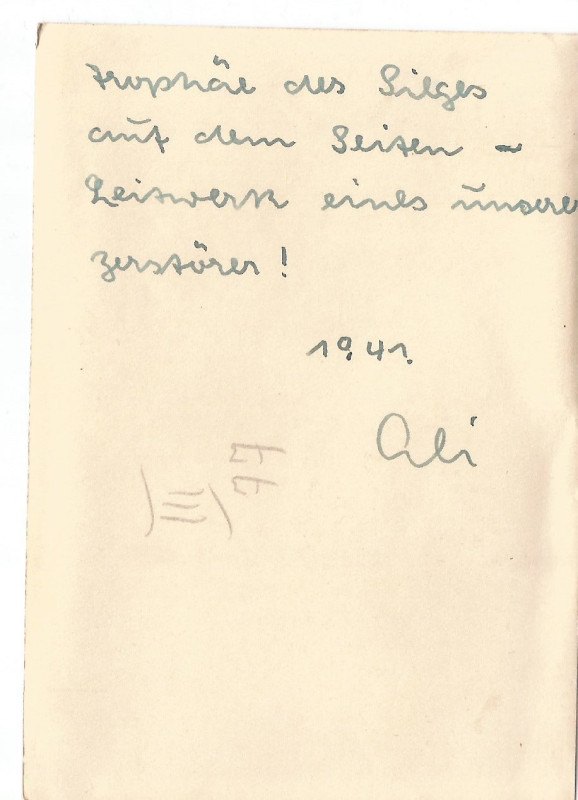 Trophäe des Sieges
auf dem Seiten -
Leitwerk eines unserer
Zerstörer!
1941.
Ali